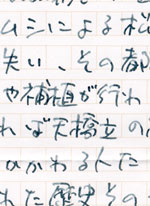 ムシによる松
失い、その都
や補植が行わ
れば天橋立の
ひかわる人た
れた歴史その